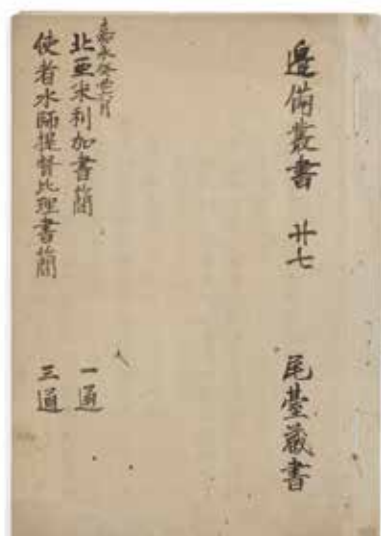 邊備叢書 廿七 尾臺蔵書
嘉永癸丑六月
北亜米利加書簡 一通
使者水師提督比理書簡 三通